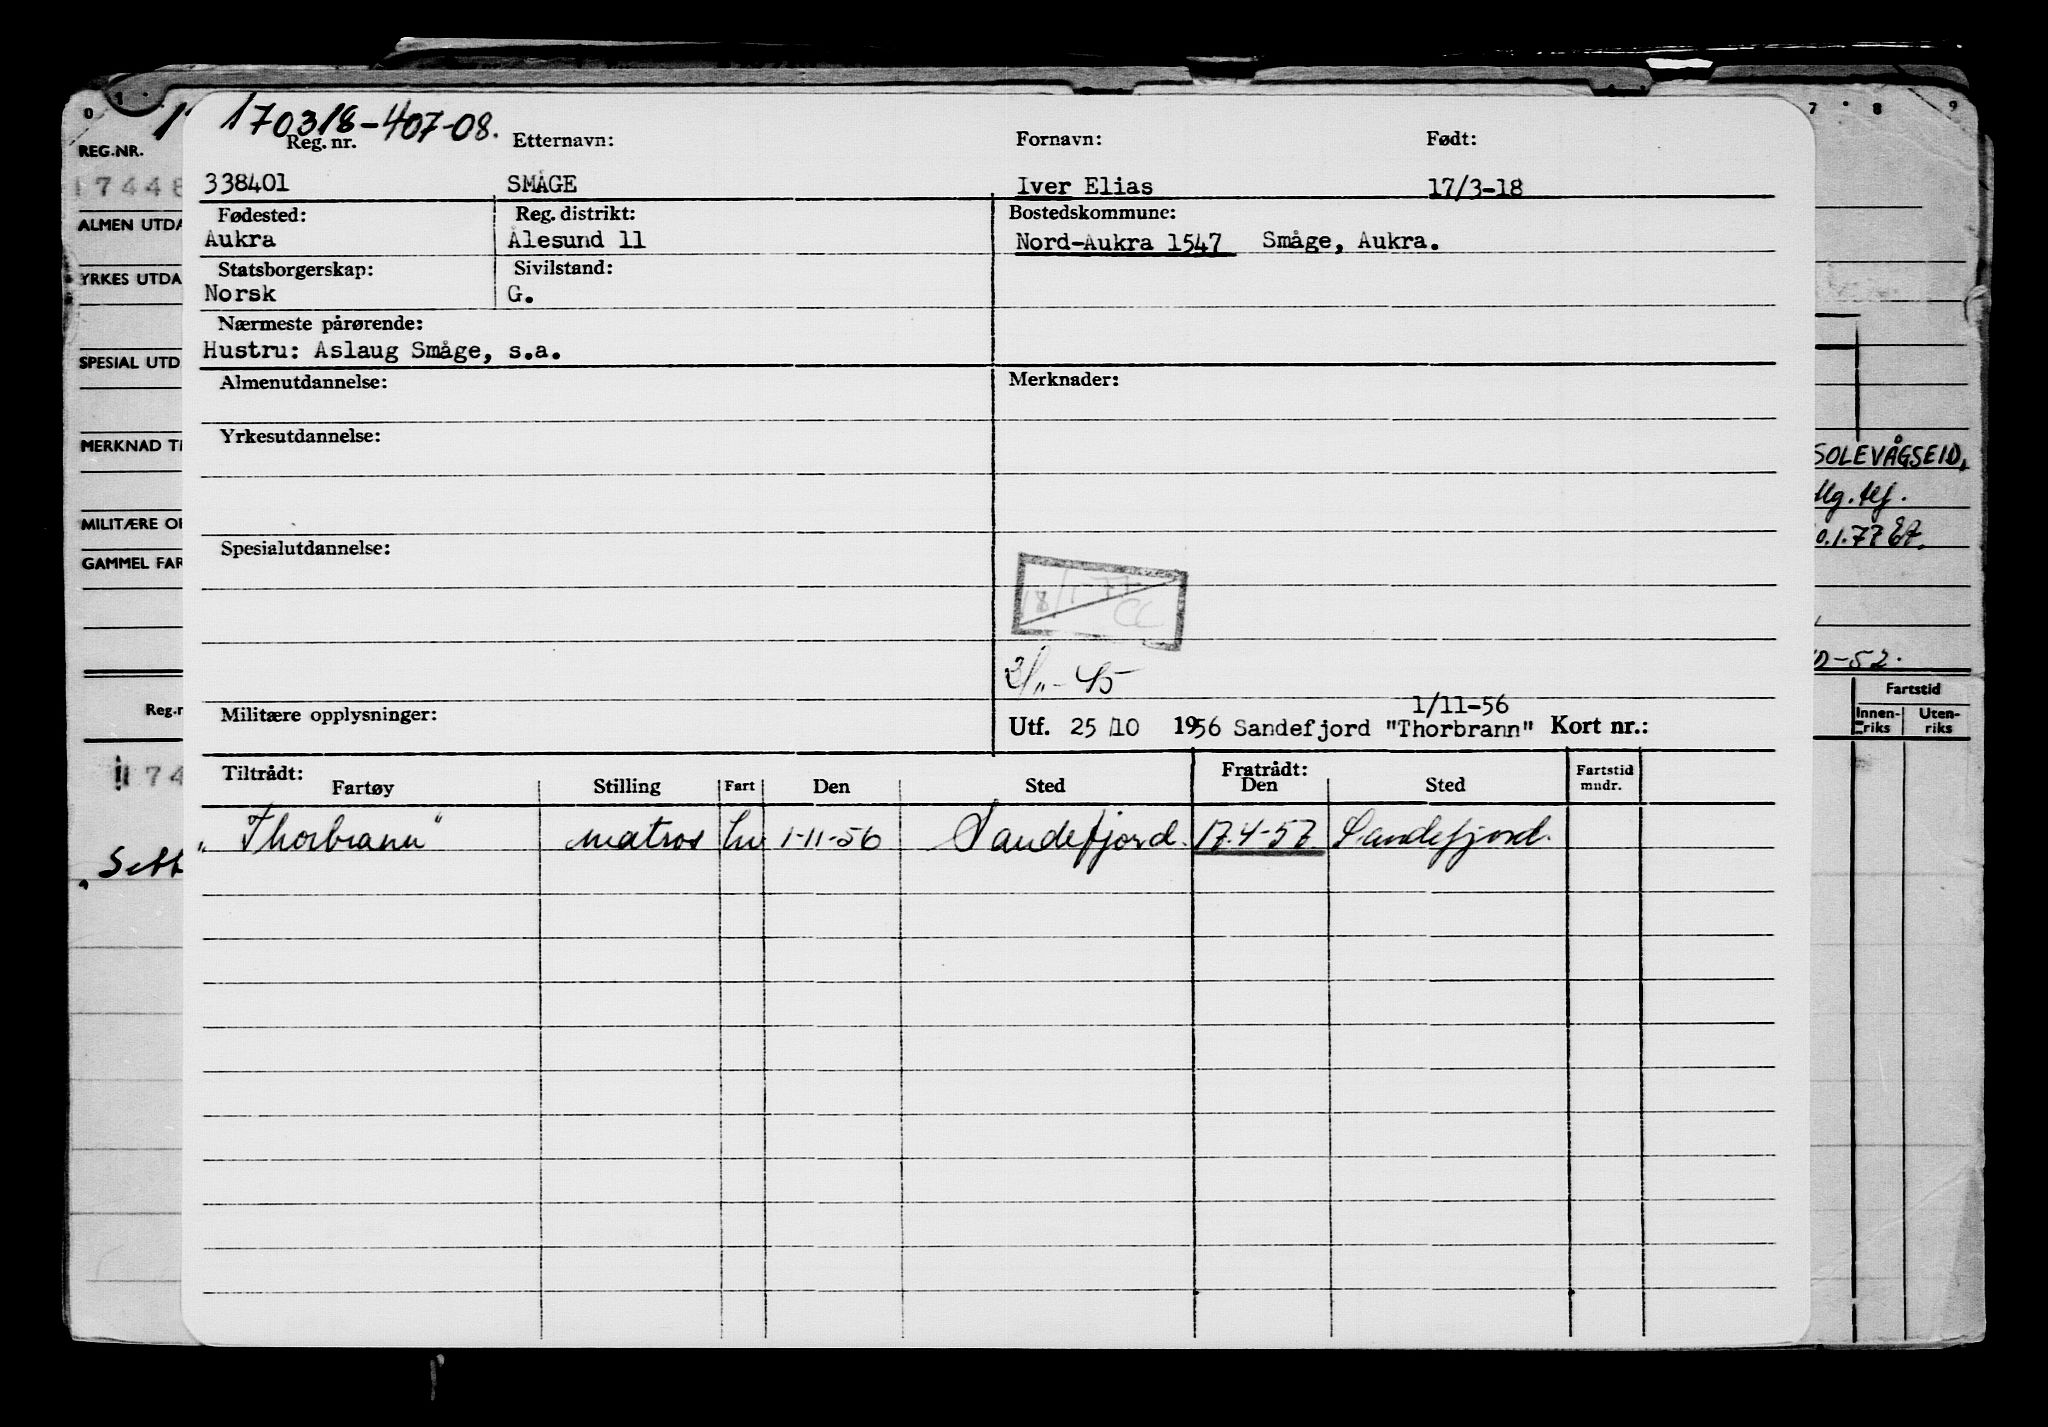 0 1 7 8 9
170318-407-08.
REG.NR. Reg. nr. Etternavn: Fornavn: Født:
17448 338401 SMÅGE Iver Elias 17/3-18
ALMEN UTDA Fødested: Reg. distrikt: Bostedskommune:
Aukra Ålesund 11 Nord-Aukra 1547 Småge, Aukra.
YRKES UTDA Statsborgerskap: Sivilstand:
Norsk G.
Nærmeste pårørende:
SPESIAL UTD Hustru: Aslaug Småge, s.a.
Almenutdannelse: Merknader:
MERKNAD TI Yrkesutdannelse: SOLEVÅGSEID,
Mg. tlf.
MILITÆRE OP 0.1.77
GAMMEL FAR Spesialutdannelse:
18/1-77
CC
2/11-45 -52.
Fartstid
Innenriks Utenriks
1/11-56
Reg.n Militære opplysninger: Utf. 25/10 1956 Sandefjord "Thorbrann" Kort nr.:
174 Tiltrådt: Fratrådt: Fartstid mndr.
Fartøy Stilling Fart Den Sted Den Sted
"Thorbrann" matros 1-11-56 Sandefjord. 17.4-57 Sandefjord.